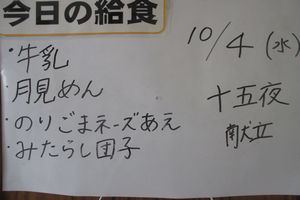 今日の給食
10/4(水)
・牛乳
・月見めん
・のりごまネーズあえ
・みたらし団子
十五夜
献立